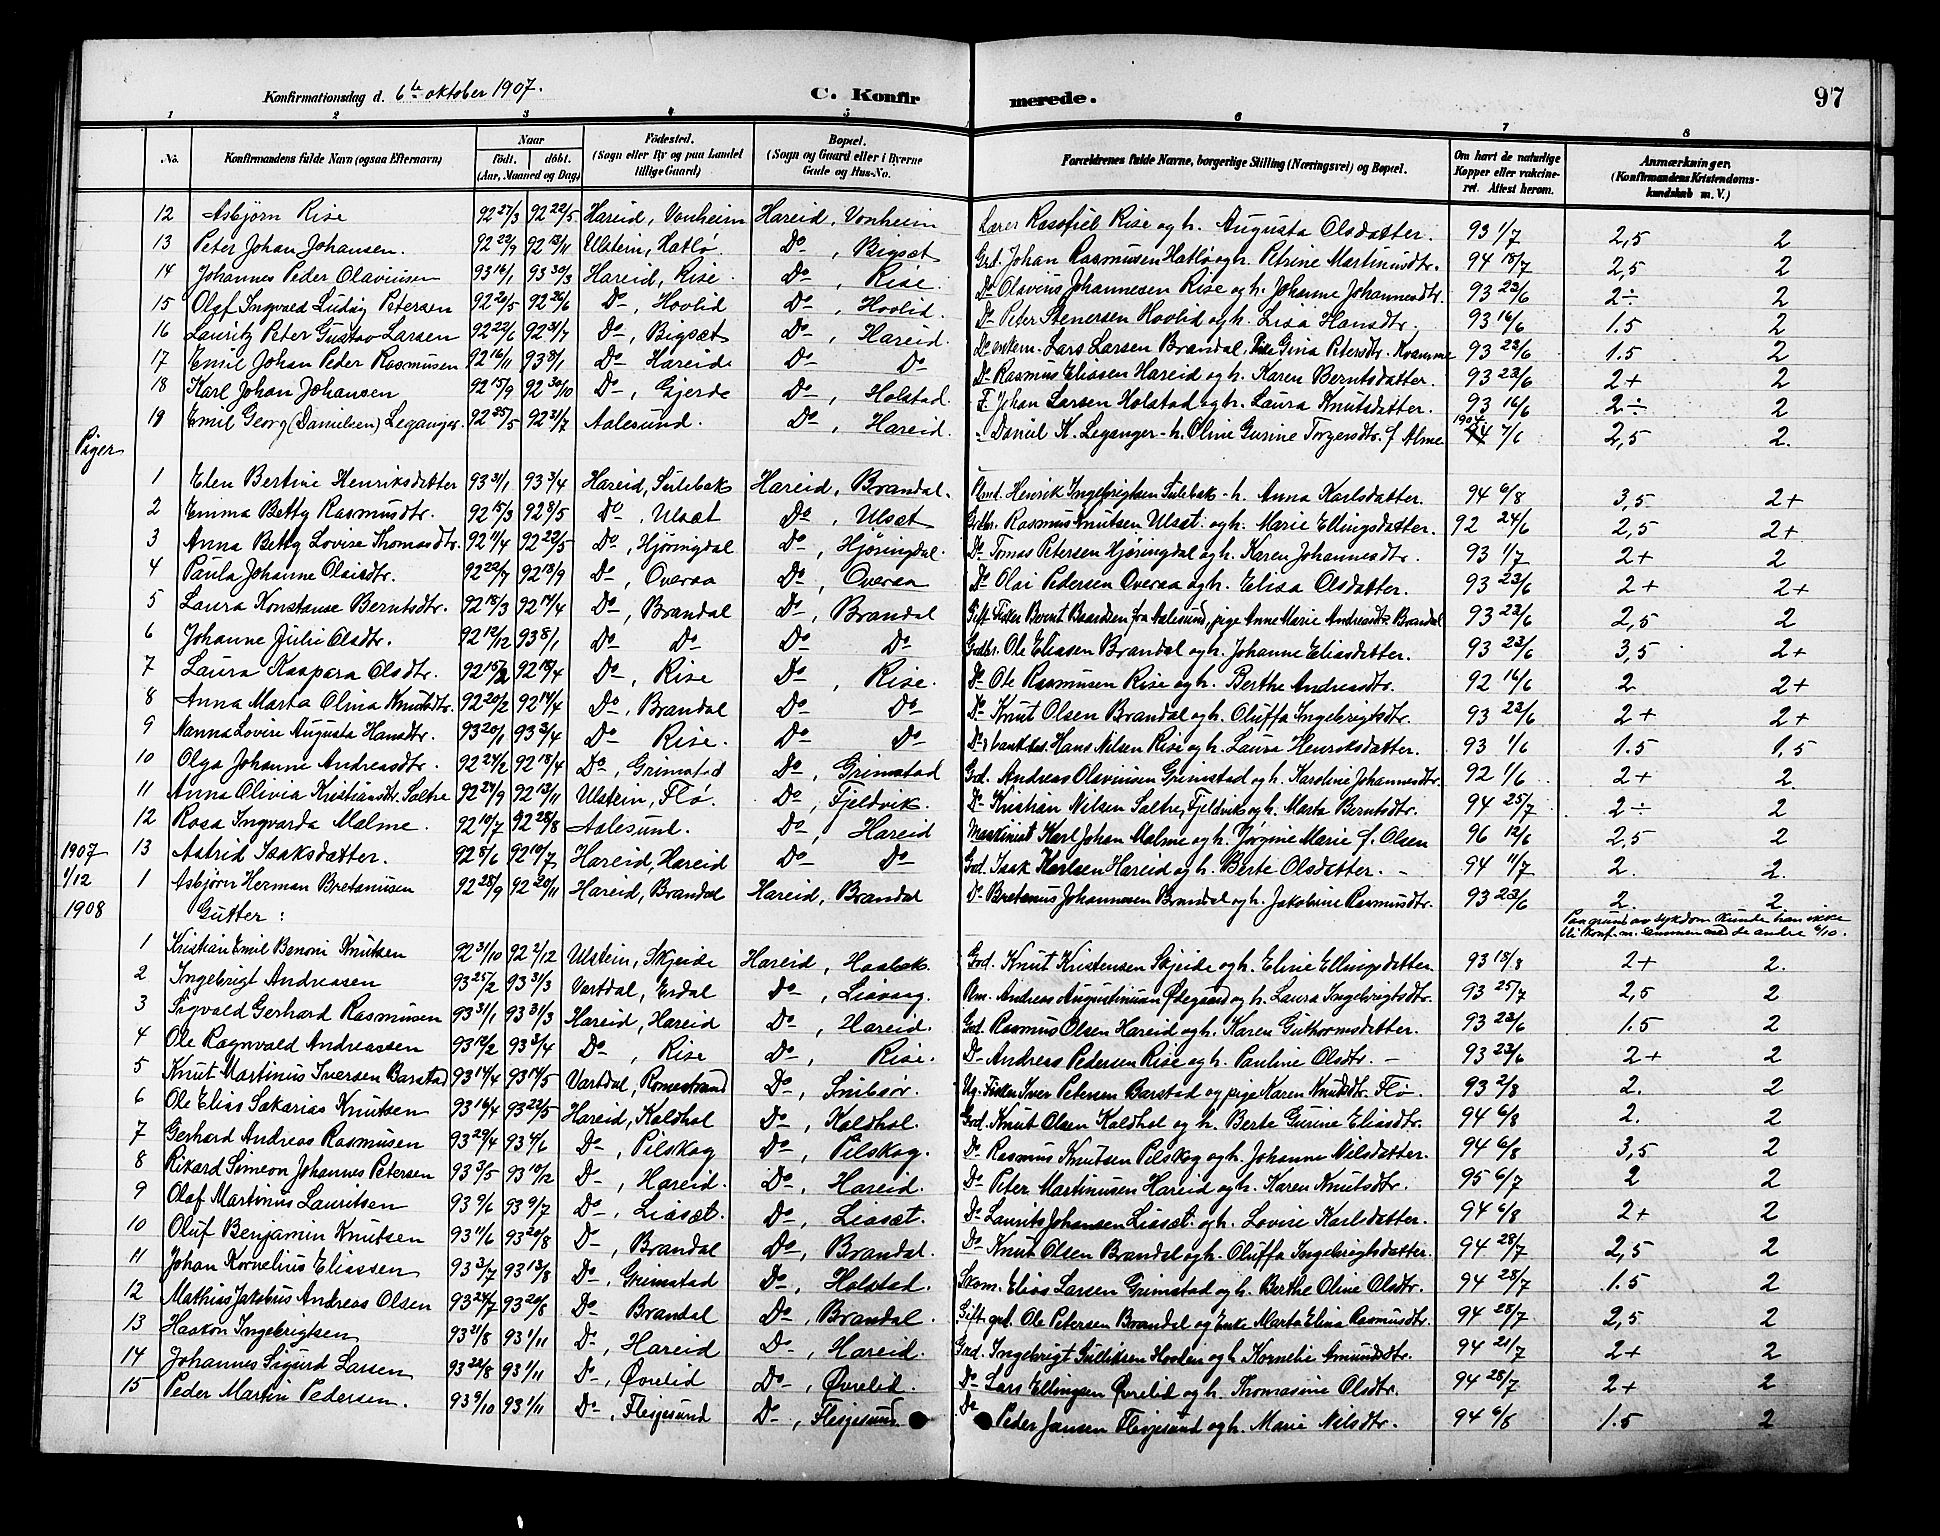 Konfirmationsdag d. 6te oktober 1907. C. Konfirmerede. 97
1 2 3 4 5 6 7 8
No. Konfirmandens fulde Navn (ogsaa Efternavn) Naar født. døbt. (Aar, Maaned og Dag) Fødested. (Sogn eller By og paa Landet tillige Gaard) Bopæl. (Sogn og Gaard eller i Byerne Gade og Hus-No. Forældrenes fulde Navne, borgerlige Stilling (Næringsvei) og Bopæl. Om havt de naturlige Kopper eller vakcineret. Attest herom. Anmærkninger. (Konfirmandens Kristendomskundskab m. V.)
12 Asbjørn Rise 92 27/3 92 22/5 Hareid, Vonheim Hareid, Vonheim Lærer Rise og h. Augusta Olsdatter. 93 1/7 2,5 2
13 Peter Johan Johansen. 92 22/9 92 13/11 Ulstein, Hatlø Do, Bigsæt Grd. Johan Rasmusen Hatlø og h. Petrine Martinusdtr. 94 18/7 2,5 2
14 Johannes Peder Olaviusen 93 16/1 93 30/3 Hareid, Rise. Do, Rise. Do Olavius Johannesen Rise og h. Johanne Johannesdtr. 93 23/6 2÷ 2
15 Olaf Ingvald Ludvig Petersen 92 20/5 92 26/6 Do, Hovlid Do, Hovlid. Do Peter Stenersen Hovlid og h. Lisa Hansdtr. 93 16/6 1.5 2
16 Lauritz Peter Gustav Larsen 92 22/6 92 31/7 Do, Bigsæt Do, Hareid. Do enkem. Lars Larsen Brandal, Gina Petersdtr. Kvamme 93 23/6 1.5 2
17 Emil Johan Peder Rasmusen 92 16/11 93 8/1 Do, Hareide Do Do Do Rasmus Eliasen Hareid og h. Karen Berntsdatter. 93 23/6 2+ 2
18 Karl Johan Johansen 92 15/9 92 30/10 Do, Gjerde Do, Holstad. F. Johan Larsen Holstad og h. Laura Knutsdatter. 93 16/6 2÷ 2
19 Emil Georg (Danielsen) Leganger. 92 25/5 92 31/7 Aalesund. Do, Hareid. Daniel K. Leganger - h. Oline Gurine Torgersdtr. f. Alme 1907 7/6 2,5 2.
Piger
1 Elen Bertine Henriksdatter 93 31/1 93 3/4 Hareid, Sulebak Hareid, Brandal. Henrik Ingebrigtsen Sulebak - h. Anna Karlsdatter. 94 6/8 3,5 2+
2 Emma Betty Rasmusdtr. 92 15/3 92 8/5 Do, Ulsæt Do, Ulsæt Grdbr. Rasmus Knutsen Ulsæt og h. Marie Ellingsdatter. 92 24/6 2,5 2+
3 Anna Betty Lovise Thomasdtr. 92 11/4 92 22/5 Do, Hjøringdal Do, Hjøringdal. Do Tomas Petersen Hjøringdal og h. Karen Johannesdtr. 93 1/7 2+ 2
4 Paula Johanne Olaisdtr. 92 22/7 92 18/9 Do, Overaa Do, Overaa Do Olai Pedersen Overaa og h. Elisa Olsdatter. 93 23/6 2+ 2+
5 Laura Konstanse Berntsdtr. 92 18/3 92 14/4 Do, Brandal Do, Brandal Gift Fisker Bernt Baardsen fra Aalesund, pige Anne Marie Andreasdtr. Brandal 93 23/6 2,5 2
6 Johanne Julie Olsdtr. 92 12/12 93 8/1 Do Do Do Do Grdbr. Ole Eliasen Brandal og h. Johanne Eliasdatter. 93 23/6 3,5 2+
7 Laura Kaspara Olsdtr. 92 15/2 92 18/4 Do, Rise Do, Rise. Do Ole Rasmusen Rise og h. Berthe Andreasdtr. 92 16/6 2 2+
8 Anna Marta Olina Knutsdtr. 92 20/2 92 14/4 Do, Brandal Do Do Do Knut Olsen Brandal og h. Oluffa Ingebrigtsdtr. 93 23/6 2+ 2+
9 Nanna Lovise Augusta Hansdtr. 93 20/1 93 3/4 Do Rise. Do Do Do Hans Nilsen Rise og h. Laura Henriksdatter. 93 1/6 1.5 1,5
10 Olga Johanne Andreasdtr. 92 24/2 92 18/4 Do, Grimstad Do, Grimstad Grd. Andreas Olaviusen Grimstad og h. Karoline Johannesdtr. 92 1/6 2+ 2.
11 Anna Olivia Kristiansdtr. Saltre 92 24/9 92 13/11 Ulstein, Flø. Do, Fjeldvik. Do Kristian Nilsen Saltre, Fjeldvik og h. Marta Berntsdtr. 94 25/7 2÷ 2
12 Rosa Ingvarda Malme. 92 10/7 92 28/8 Aalesund. Do, Hareid Maskinist Karl Johan Malme og h. Jørgine Marie f. Olsen 96 12/6 2,5 2
1907 13 Astrid Isaksdatter. 92 5/6 92 10/7 Hareid, Hareid Do Do Grd. Isak Karlsen Hareid og h. Berte Olsdatter. - 94 11/7 2. 2.
1/12 1 Asbjørn Herman Bretanusen 92 28/9 92 20/11 Hareid, Brandal Hareid, Brandal Do Bretanus Johannesen Brandal og h. Jakobine Rasmusdtr. 93 23/6 2. 2
1908 Gutter: Paa grund av sykdom kunde han ikke
bli konfirm. sammen med de andre 6/10.
1 Kristian Emil Benoni Knutsen 92 31/10 92 2/12 Ulstein, Skjeide Hareid, Haabak. Grd. Knut Kristensen Skjeide og h. Eline Ellingsdatter. 93 18/8 2+ 2.
2 Ingebrigt Andreasen 93 25/2 93 31/3 Vartdal, Erdal Do, Liavaag. Andreas Augustinusen Ødegaard og h. Laura Ingebrigtsdtr. 93 25/7 2,5 2
3 Sigvald Gerhard Rasmusen 93 31/1 93 31/3 Hareid, Hareid Do, Hareid. Grd. Rasmus Olsen Hareid og h. Karen Guthormsdatter. 93 23/6 1.5 2
4 Ole Ragnvald Andreassen 93 12/2 93 3/4 Do, Rise Do, Rise. Do Andreas Pedersen Rise og h. Pauline Olsdtr. - 93 23/6 2+ 2
5 Knut Martinus Iversen Barstad 93 14/4 93 14/5 Vartdal, Romestrand Do, Snibsør. Ug. Fisker Iver Petersen Barstad og pige Karen Knutsdtr. Flø. 93 2/8 2. 2
6 Ole Elias Sakarias Knutsen 93 16/4 93 22/5 Hareid, Kaldhol Do, Kaldhol. Grd. Knut Olsen Kaldhol og h. Berte Gurine Eliasdtr. 94 6/8 2. 2
7 Gerhard Andreas Rasmusen 93 29/4 93 4/6 Do, Pilskog Do, Pilskog. Do Rasmus Knutsen Pilskog og h. Johanne Nilsdatter. 94 6/8 3,5 2
8 Rikard Simeon Johannes Petersen 93 3/5 93 10/12 Do, Hareid. Do, Hareid. Do Peter Martinusen Hareid og h. Karen Knutsdtr. 95 6/7 2 2
9 Olaf Martinus Lauritsen 93 9/6 93 9/7 Do, Liasæt. Do, Liasæt. Do Laurits Johansen Liasæt og h. Lovise Karlsdatter. 94 6/8 2+ 2
10 Oluf Benjamin Knutsen 93 11/6 93 20/8 Do, Brandal Do, Brandal. Do Knut Olsen Brandal og h. Oluffa Ingebrigtsdatter. 94 28/7 2,5 2
11 Johan Kornelius Eliassen 93 3/7 93 13/8 Do, Grimstad Do, Holstad. Elias Larsen Grimstad og h. Berthe Oline Olsdtr. 94 28/7 1.5 2
12 Mathias Jakobus Andreas Olsen 93 24/7 93 20/8 Do Brandal Do, Brandal. Gift grd. Ole Petersen Brandal og Enke Marta Elina Rasmusdtr. 94 28/7 2,5 2
13 Haakon Ingebrigtsen 93 21/8 93 1/11 Do, Hareid Do, Hareid. Grd. Ingebrigt Gulliksen Hovlen og h. Kornelie Amundsdtr. 94 21/7 2+ 2
14 Johannes Sigurd Larsen 93 22/8 93 1/11 Do, Øvrelid Do, Øvrelid. Do Lars Ellingsen Øvrelid og h. Thomasine Olsdtr. 94 28/7 2+ 2
15 Peder Martin Pedersen. 93 9/10 93 1/11 Do, Flesjesund Do, Flesjesund Do Peder Jansen Flesjesund og h. Marie Nilsdtr. 94 6/8 1.5 2